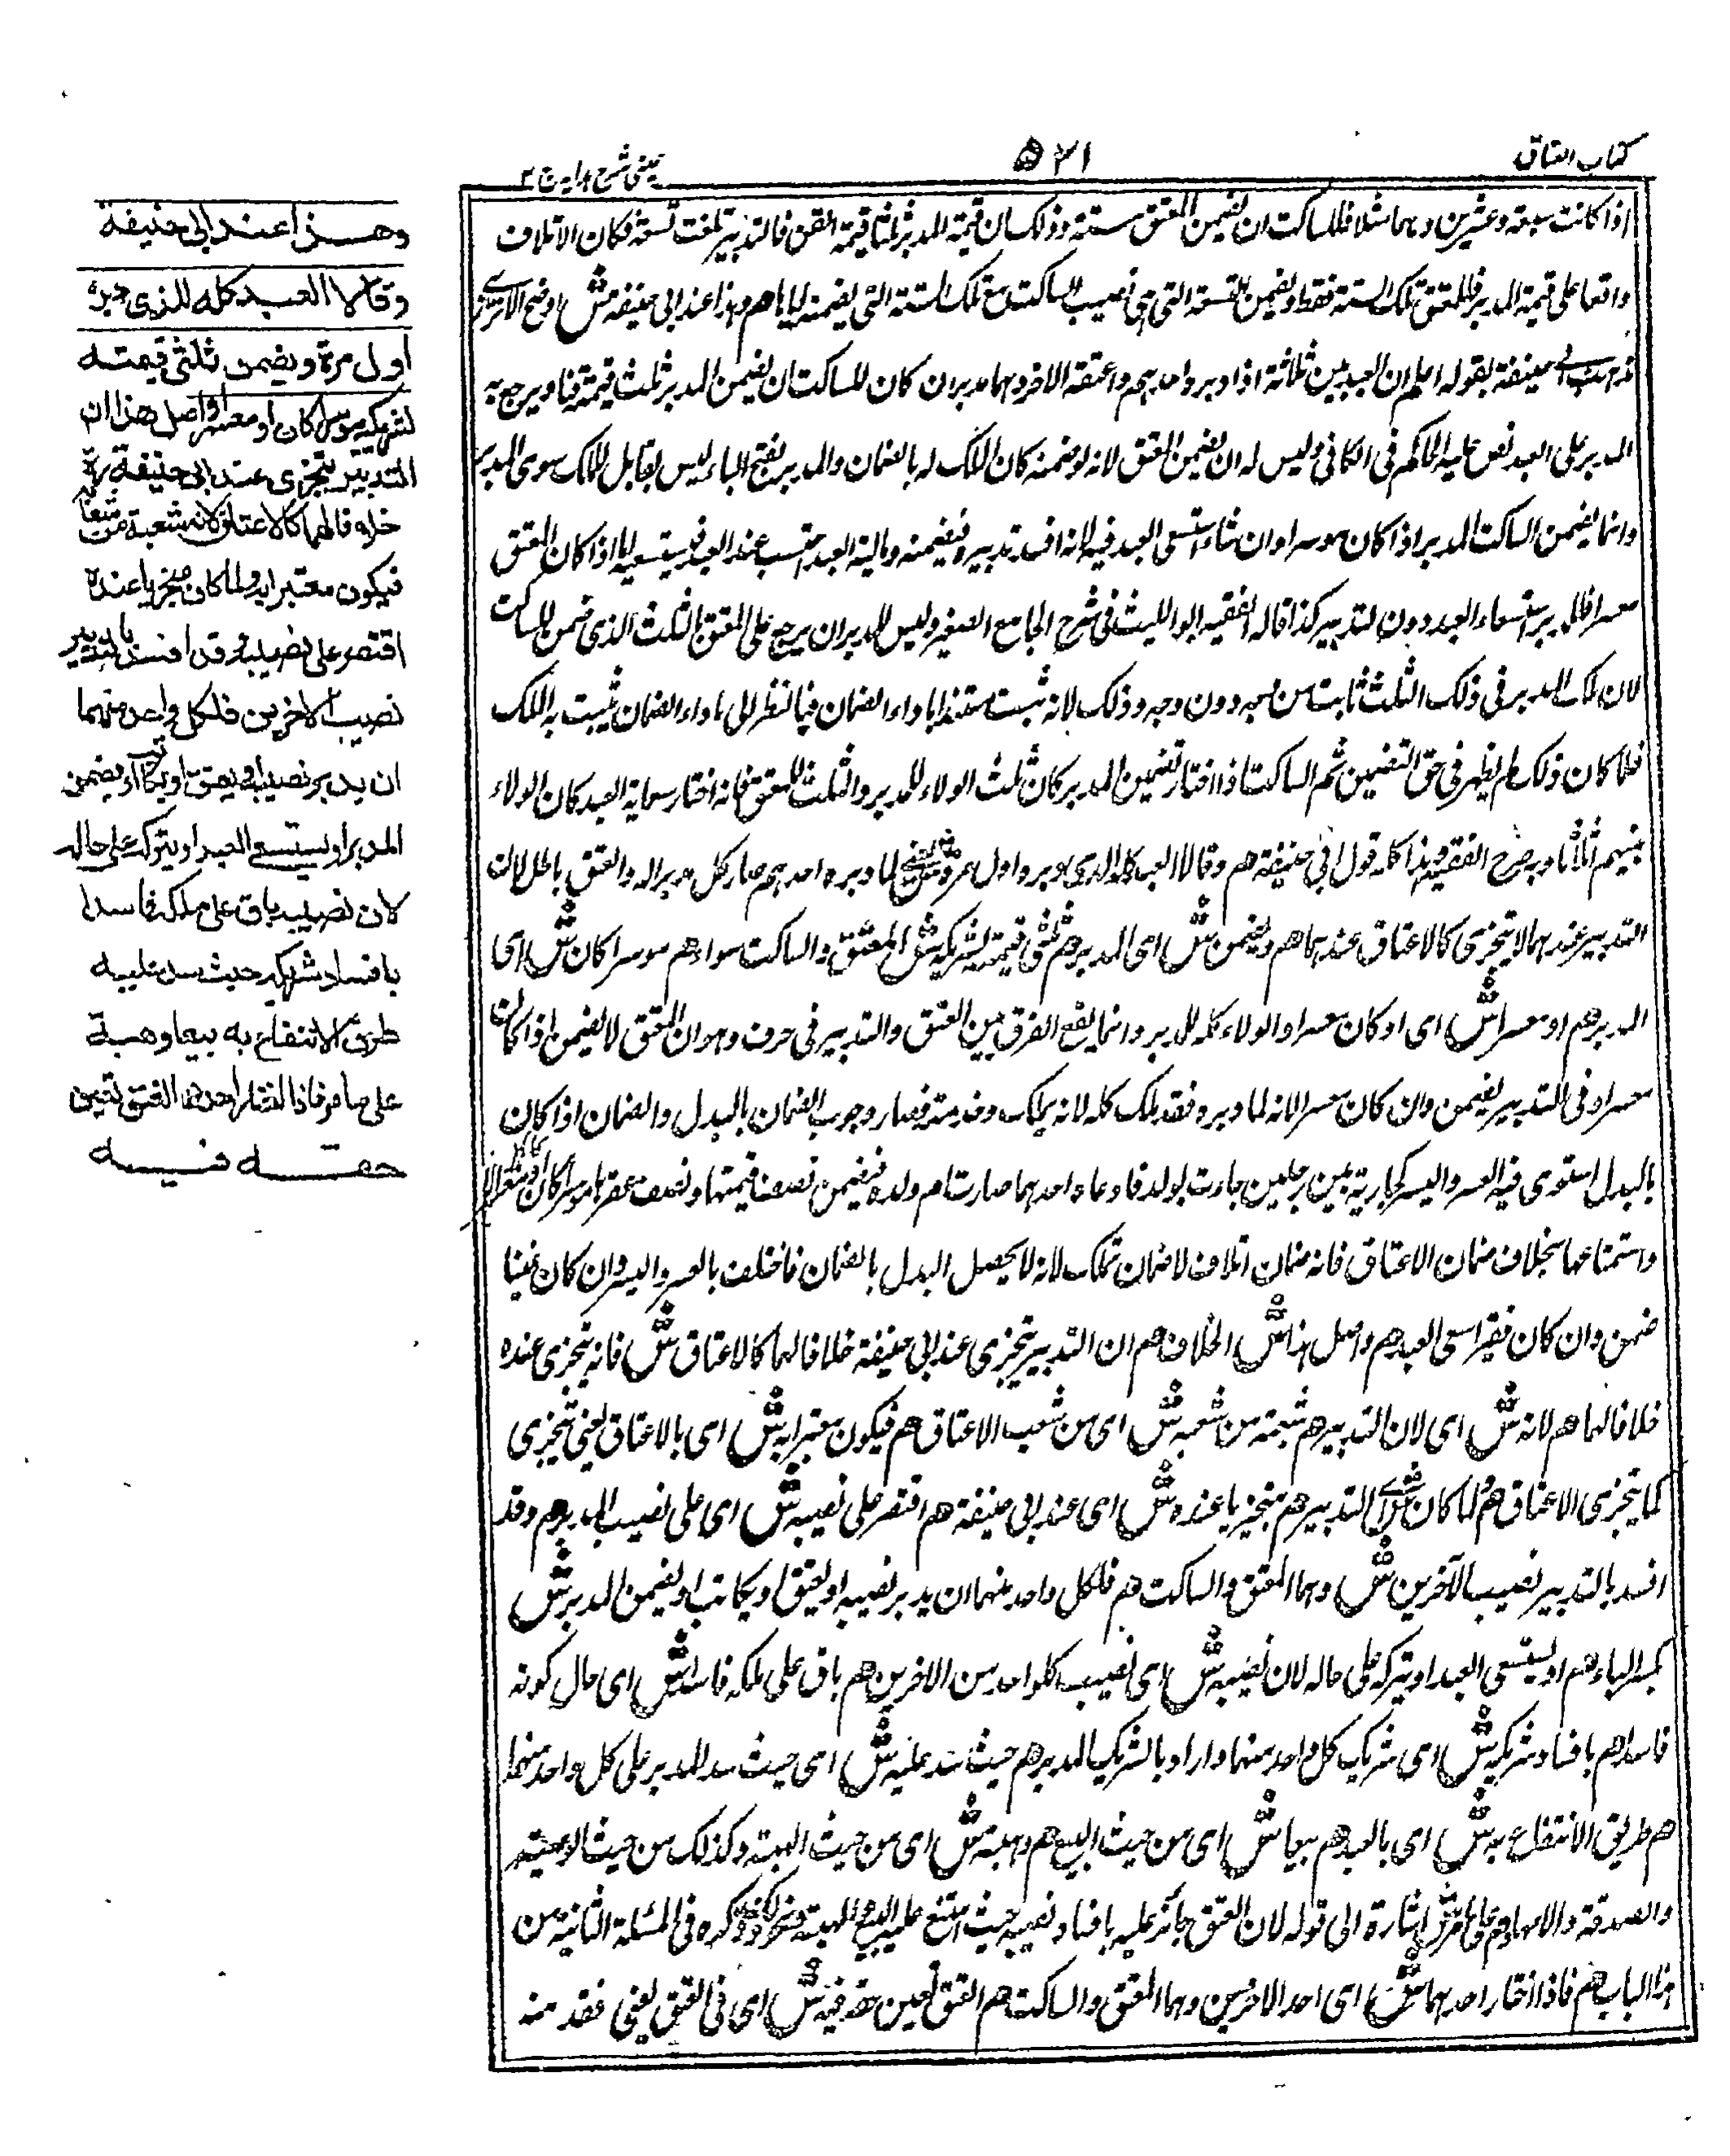 كتاب العتاق
٥٣١
عينی شرح هدايه ج ٢
اذا كانت سبعة وعشرين درهما مثلا فللساكت ان يضمن المعتق ستة وذلك لان قيمة المدبر ثلثا قيمة القن فالتدبير تلفت تسعة فكان الاتلاف
واقعا على قيمة المدبر فللمعتق تلك الستة فقط ويضمن التسعة التي هي نصيب الساكت مع تلك الستة التي يضمنه اياها هم وهذا عند ابي حنيفه ش اوضح الاترازي
مذهب ابي حنيفة بقوله اعلم ان العبد بين ثلاثة اذا دبر واحد منهم واعتقه الاخر وهما موسران كان للساكت ان يضمن المدبر ثلث قيمته قنا ويرجع به
المدبر على العبد نص عليه الحاكم في الكافي وليس له ان يضمن المعتق لانه لو ضمنه كان الملك له بالضمان والمدبر بفتح الباء ليس بقابل للملك سوى المدبر
وانما يضمن الساكت المدبر اذا كان موسرا وان شاء استسعى العبد فيه لانه افسد تدبيره فيضمنه ومالية العبد احتبست عند العبد فيستسعيه اما اذا كان المعتق
معسرا فللمدبر استسعاء العبد دون التدبير كذا قاله الفقيه ابو الليث في شرح الجامع الصغير وليس للمدبر ان يرجع على المعتق بالثلث الذي ضمن للساكت
لان ملك المدبر في ذلك الثلث ثابت من وجه دون وجه وذلك لانه ثبت مستندا باداء الضمان فبالنظر الى اداء الضمان يثبت به الملك
فلما كان ذلك لم يظهر في حق التضمين ثم الساكت اذا اختار تضمين المدبر كان ثلثا الولاء للمدبر والثلث للمعتق فانه اختار سعاية العبد كان الولاء
بينهم اثلاثا وبه صرح الفقيه وهذا كله قول ابي حنيفة هم وقالا العبد كله للذي دبره اول مرة ش لما دبره احدهم صار كل مدبرا له والعتق باطل لان
التدبير عندهما لا يتجزى كالاعتاق عندهما هم ويضمن ش اى المدبر هم ثلثى قيمته لشريكيه ش المعتق والساكت سواء هم موسرا كان ش اى
المدبر هم او معسرا ش اى او كان معسرا والولاء كله للمدبر وانما يقع الفرق بين العتق والتدبير في حرف وهو ان المعتق لا يضمن اذا كان
معسرا وفى التدبير يضمن وان كان معسرا لانه لما دبره فقد ملك كله لانه يملك وخدمته فصار وجوب الضمان بالبدل والضمان اذا كان
بالبدل استوى فيه العسر واليسر كجارية بين رجلين جاءت بولد فادعاه احدهما صارت ام ولده فيضمن نصف قيمتها ونصف عقرها موسرا كان او معسرا
واستمتاعها بخلاف ضمان الاعتاق فانه ضمان اتلاف لا ضمان تملك لانه لا يحصل البدل بالضمان فاختلف بالعسر واليسر وان كان غنيا
ضمن وان كان فقيرا سعى العبد هم واصل هذا ش الخلاف هم ان التدبير يتجزى عند ابي حنيفة خلافا لهما كالاعتاق ش فانه يتجزى عنده
خلافا لهما هم لانه ش اى لان التدبير هم شعبة من شعبه ش اى من شعب الاعتاق هم فيكون معتبرا به ش اى بالاعتاق يعنى يتجزى
كما يتجزى الاعتاق هم ولما كان ش اى التدبير هم متجزيا عنده ش اى عند ابي حنيفة هم اقتصر على نصيبه ش اى على نصيب المدبر هم وقد
افسد بالتدبير نصيب الآخرين ش وهما المعتق والساكت هم فلكل واحد منهما ان يدبر نصيبه او يعتق او يكاتب او يضمن المدبر ش
بكسر الباء هم او يستسعى العبد او يتركه على حاله لان نصيبه ش اى نصيب كلواحد من الاخرين هم باق على ملكه فاسدا ش اى حال كونه
فاسدا هم بافساد شريكه ش اى شريك كل واحد منهما واراد بالشريك المدبر هم حيث سد عليه ش اى حيث سد المدبر على كل واحد منهما
هم طريق الانتفاع به ش اى بالعبد هم بيعا ش اى من حيث البيع هم وهبة ش اى من حيث الهبة وكذلك من حيث الوصية
والصدقة والامهار هم على ما مر ش اشارة الى قوله لان العتق جائز عليه بافساد نصيبه حيث امتنع عليه البيع والهبة ونحو ذلك ذكره فى المسئلة الثانية من
هذا الباب هم فاذا اختار احدهما ش اى احد الاخرين وهما المعتق والساكت هم العتق تعين حقه فيه ش اى فى العتق يعنى فقد منه
وهذا عند ابى حنيفة
وقالا العبد كله للذى دبره
اول مرة ويضمن ثلثى قيمته
لشريكيه موسرا كان او معسرا واصل هذا ان
التدبير يتجزى عند ابى حنيفة رح
خلافا لهما كالاعتاق لانه شعبة من شعبه
فيكون معتبرا به ولما كان متجزيا عنده
اقتصر على نصيبه وقد افسد بالتدبير
نصيب الاخرين فلكل واحد منهما
ان يدبر نصيبه او يعتق او يكاتب او يضمن
المدبر او يستسعى العبد او يتركه على حاله
لان نصيبه باق على ملكه فاسدا
بافساد شريكه حيث سد عليه
طريق الانتفاع به بيعا وهبة
على ما مر فاذا اختار احدهما العتق تعين
حقه فيه